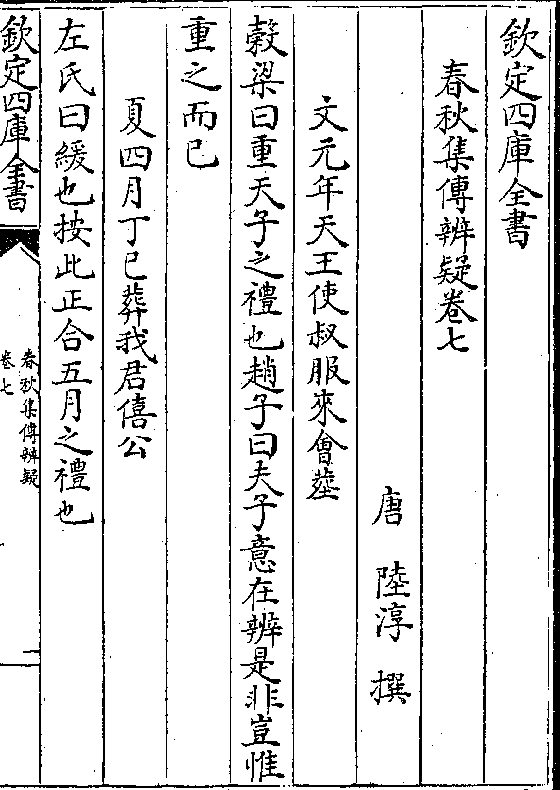 欽定四庫全書
春秋集傳辨疑卷七
唐 陸淳 撰
文元年天王使叔服來會葬
穀梁曰重天子之禮也趙子曰夫子意在辨是非豈惟
重之而已
夏四月丁巳葬我君僖公
左氏曰緩也按此正合五月之禮也
欽定四庫全書
春秋集傳辨疑
卷七
一